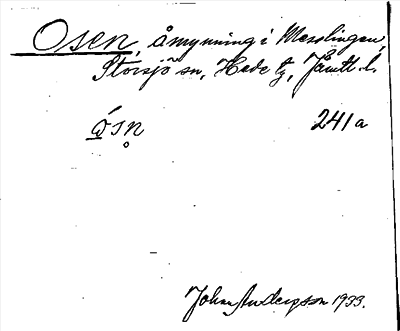 Osen, åmynning i Messlingen,
Storsjö sn, Hede tg, Jämtl. l.
241a
John Andersson 1933.